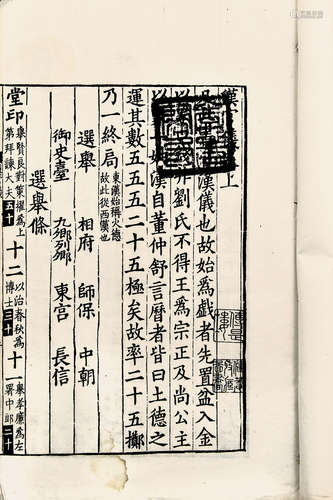 漢 上
漢儀也故始為戲者先置盆入金
劉氏不得王為宗正及尚公主
漢自董仲舒言曆者皆曰土德之
運其數五五五二十五極矣故率二十五擲
乃一終局 東漢始稱火德故此從西漢也
選舉 相府 師保 中朝
御史臺 九卿列卿 東宮 長信
選舉條
堂印 舉賢良對策擢為上第拜諫大夫五十 十二 以治春秋為博士三十 十一 舉孝廉為左署中郎二十